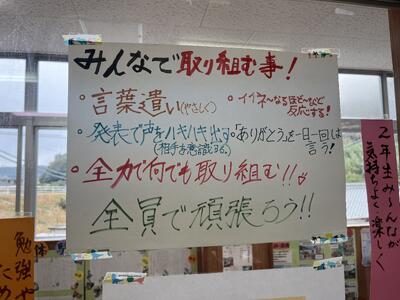 みんなで取り組む事!
・言葉遣い(やさしく)
・イイネ〜なるほど〜など
反応する!
・発表で声をハキハキ出す
(相手を意識する。)
・「ありがとう」を一日一回は
言う!
・全力で何でも取り組む!!
全員で頑張ろう!!
2年生み〜んなが
気持ちよく楽しく
勉強や
ため